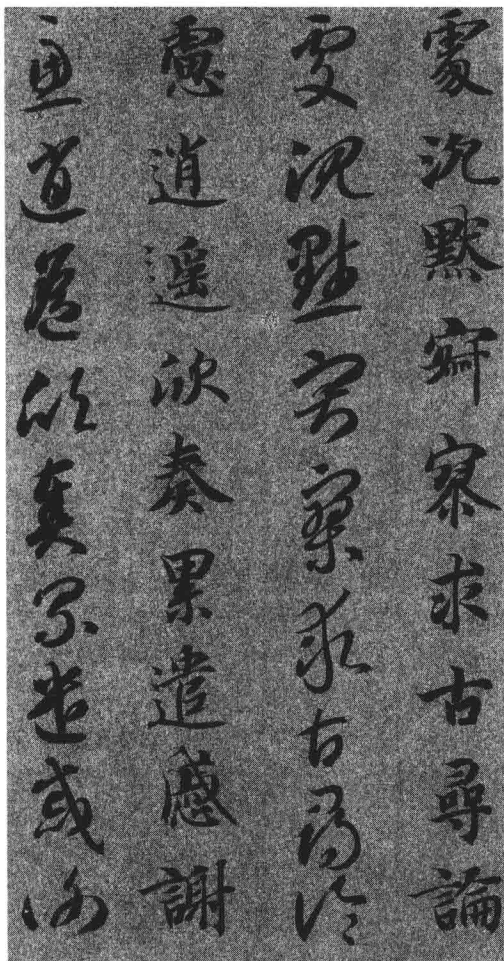 處沉黙寂寥求古尋論
處沉黙寂寥求古尋論
慮逍遥欣奏累遣慼謝
慮逍遥欣奏累遣慼謝